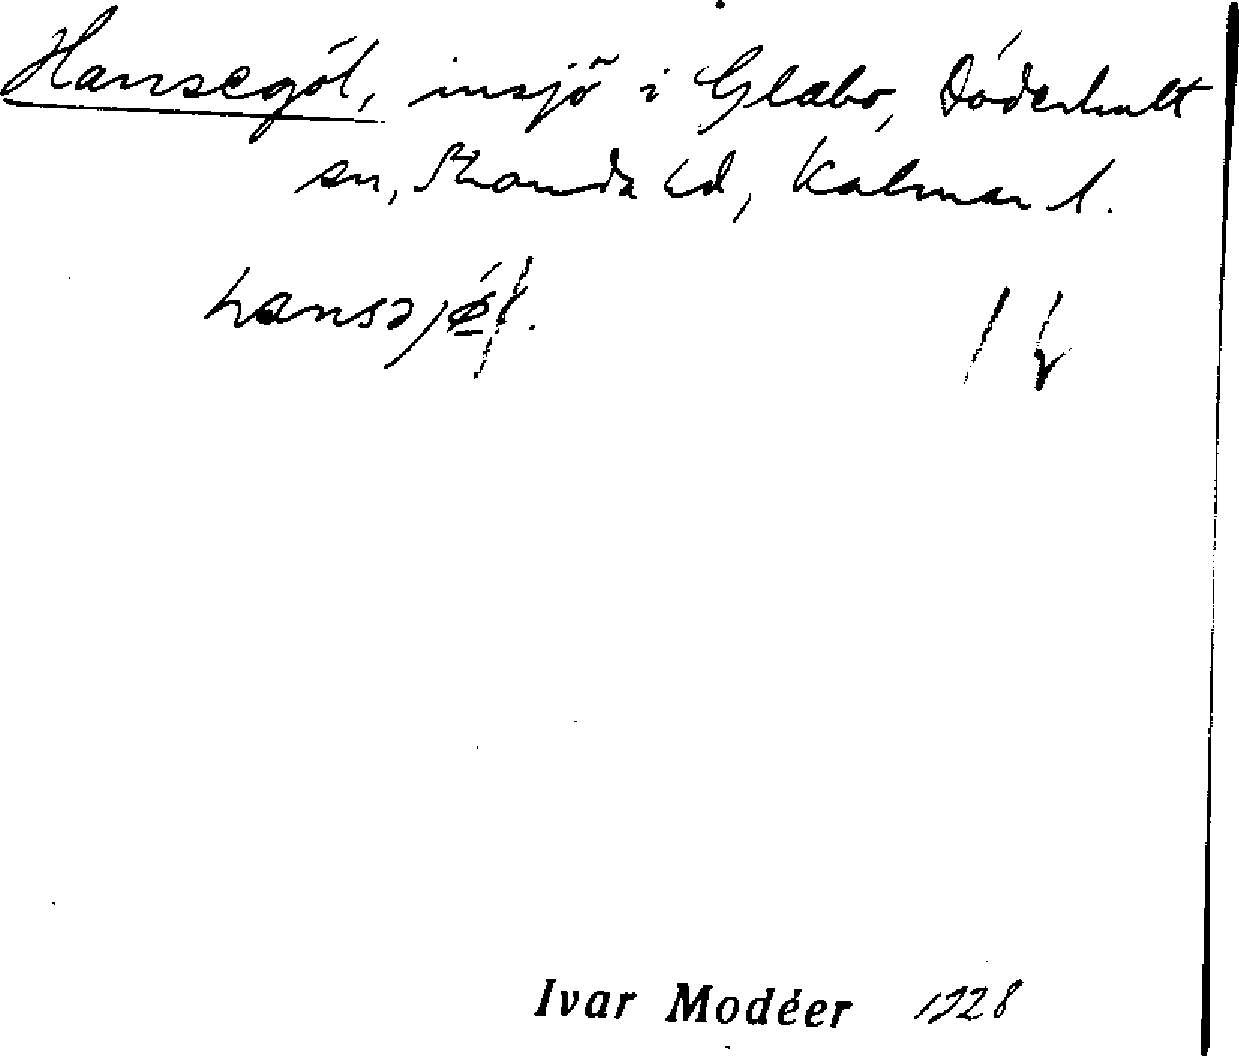 Hansegöl, insjö i Glabo, Döderhult
sn, Stranda hd, Kalmar l.
Ivar Modéer 1928